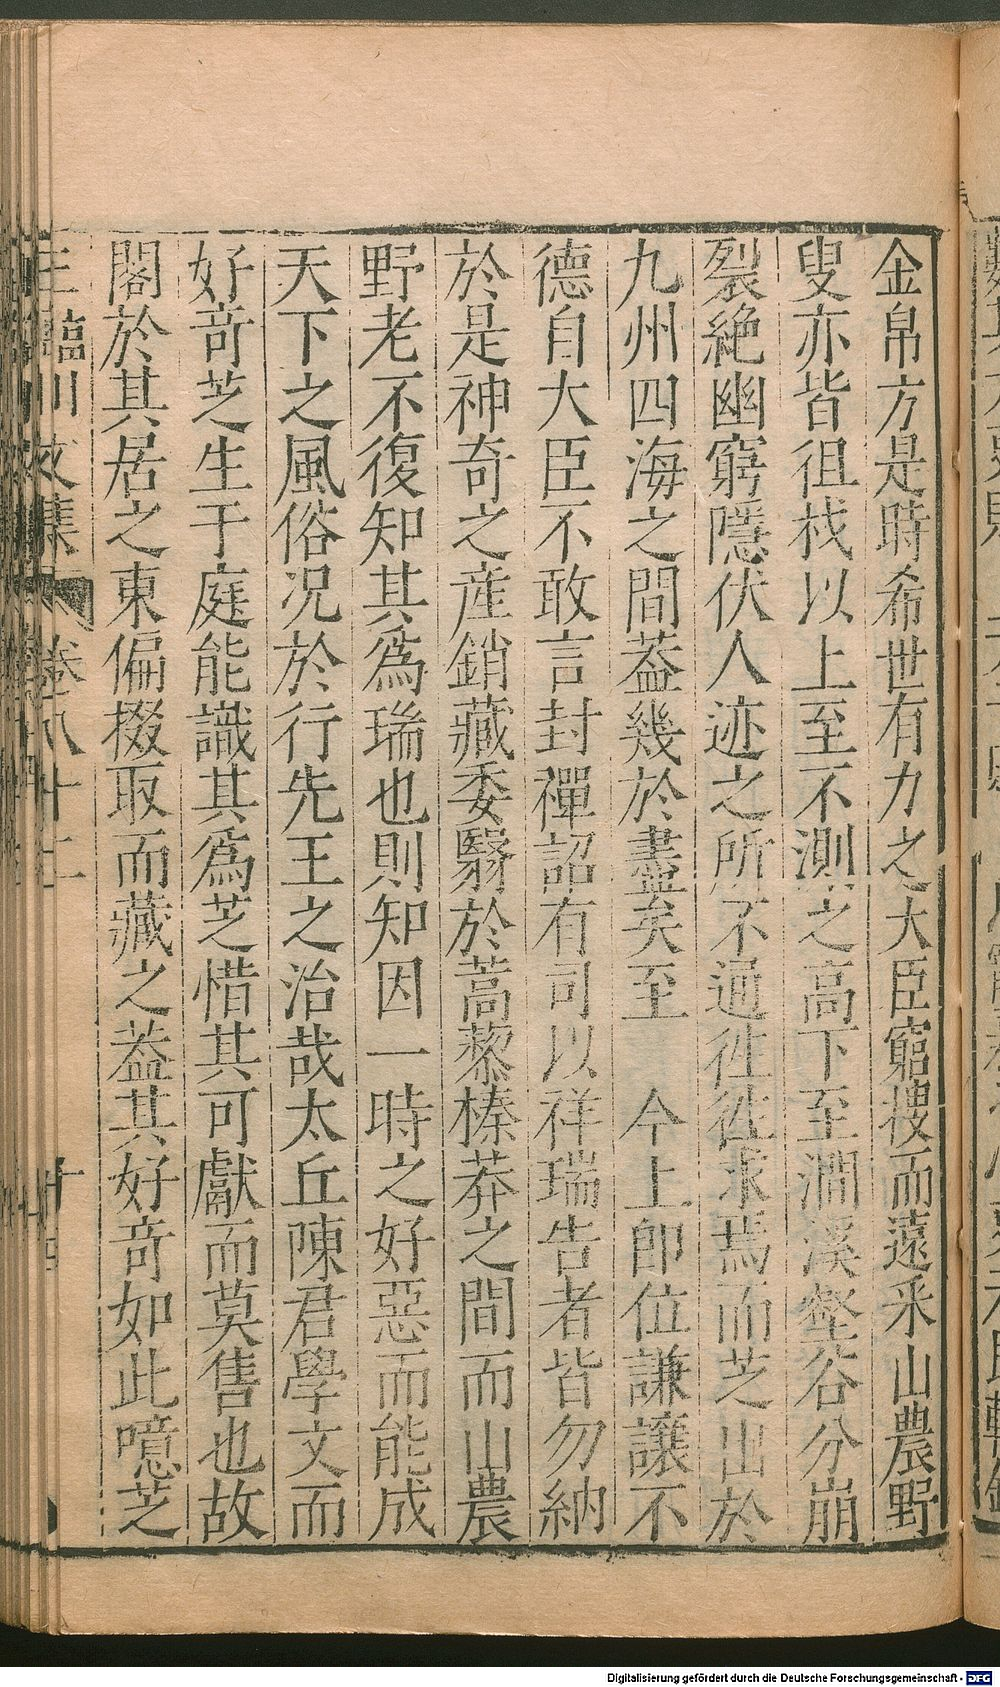 金帛方是時希世有力之大臣窮搜而遠采山農野
叟亦皆徂杙以上至不測之高下至澗溪壑谷分崩
裂絶幽窮隱伏人迹之所不通徃徃求焉而芝出於
九州四海之間葢幾於盡矣至　今上即位謙讓不
德自大臣不敢言封禪詔有司以祥瑞告者皆勿納
於是神奇之産銷藏委翳於蒿藜榛莽之間而山農
野老不復知其爲瑞也則知因一時之好惡而能成
天下之風俗况於行先王之治哉太丘陳君學文而
好竒芝生于庭能識其爲芝惜其可獻而莫售也故
閣於其居之東偏掇取而藏之葢其好竒如此噫芝
王臨川文集　卷八十二　十四
Digitalisierung gefördert durch die Deutsche Forschungsgemeinschaft - DFG